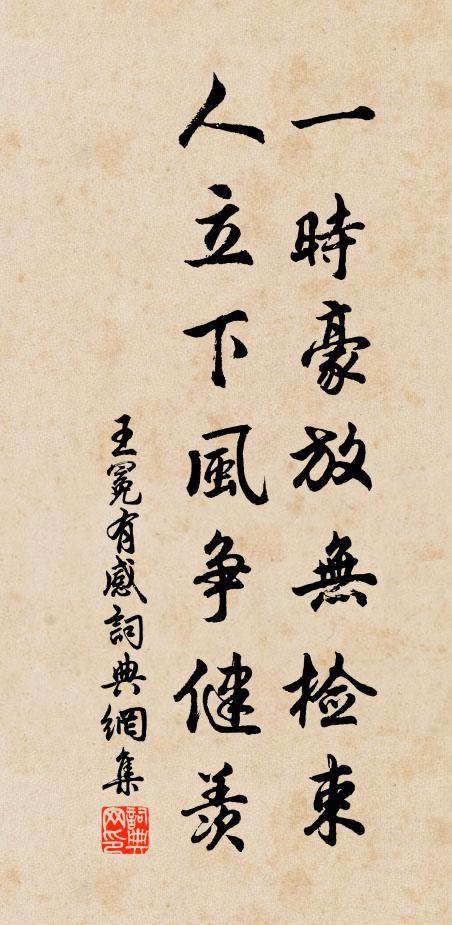 一時豪放無檢束
人立下風争健羨
王冕有感詞典網集
詞典網印